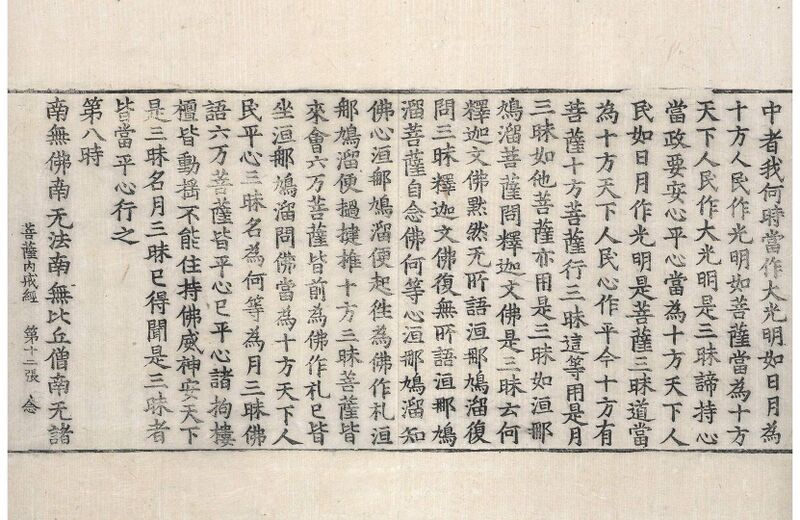 中者我何時當作大光明如日月為
十方人民作光明如菩薩當為十方
天下人民作大光明是三昧諦持心
當政要安心平心當為十方天下人
民如日月作光明是菩薩三昧道當
為十方天下人民心作平今十方有
菩薩十方菩薩行三昧這等用是月
三昧如他菩薩亦用是三昧如洹𨙻
鳩溜菩薩問釋迦文佛是三昧云何
釋迦文佛黙然无所語洹𨙻鳩溜復
問三昧釋迦文佛復無所語洹𨙻鳩
溜菩薩自念佛何等心洹𨙻鳩溜知
佛心洹𨙻鳩溜便起徃為佛作札洹
𨙻鳩溜便撾揵椎十方三昧菩薩皆
來會六万菩薩皆前為佛作礼已皆
坐洹𨙻鳩溜問佛當為十方天下人
民平心三昧名為何等為月三昧佛
語六万菩薩皆平心已平心諸拘樓
檀皆動揺不能住持佛威神安天下
是三昧名月三昧已得聞是三昧者
皆當平心行之
第八時
南無佛南无法南無比丘僧南无諸
菩薩内戒經　第十二張　念